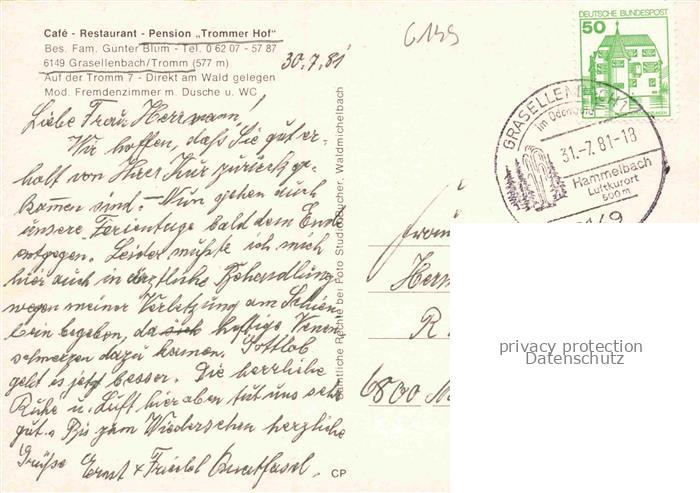 Café - Restaurant - Pension „Trommer Hof"
Bes. Fam. Günter Blum - Tel. 0 62 07 - 57 87
6149 Grasellenbach/Tromm (577 m)
Auf der Tromm 7 - Direkt am Wald gelegen
Mod. Fremdenzimmer m. Dusche u. WC
30.7.81
6149
Liebe Frau Herrmann!
Wir hoffen, daß Sie gut er-
holt von Ihrer Kur zurückge-
kommen sind. – Nun gehen auch
unsere Ferientage bald dem Ende
entgegen. Leider mußte ich mich
hier auch in ärztliche Behandlung
wegen meiner Verletzung am Schien-
bein begeben, da sich heftige Venen-
schmerzen dazu kamen. Gottlob
geht es jetzt besser. Die herrliche
Ruhe u. Luft hier oben tut uns sehr
gut. Bis zum Wiedersehen herzliche
Grüße Ernst + Friedel
Sämtliche Rechte bei Foto Studio Bücher, Waldmichelbach
CP
DEUTSCHE BUNDESPOST
50
GRASELLENBACH 1
im Odenwald
31.-7.81-18
Hammelbach
Luftkurort
500 m
6149
Frau
Herm
R
6800 M
privacy protection
Datenschutz